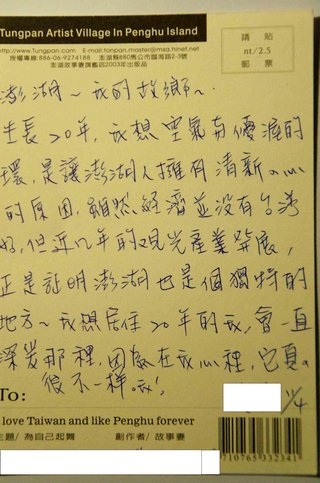 Tungpan Artist Village In Penghu Island
http://www.Tungpan.com E-mail:tonpan.master@msa.hinet.net
授權專線:886-06-9274188 澎湖縣880馬公市臨海路2-3號
澎湖故事妻旗艦店2003年出版品
請貼
nt/2.5
郵票
澎湖~我的故鄉~
生長20年,我想空氣有優渥的
環,是讓澎湖人擁有清新的心
的原因,雖然經濟並沒有台灣
好,但近幾年的觀光產業發展,
正是証明澎湖也是個獨特的
地方~我想居住20年的我,會一直
深愛那裡,因為在我心裡,它真的
很不一樣哦!
To:
1/4
love Taiwan and like Penghu forever
主題/ 為自己起舞 創作者/ 故事妻
710765332341